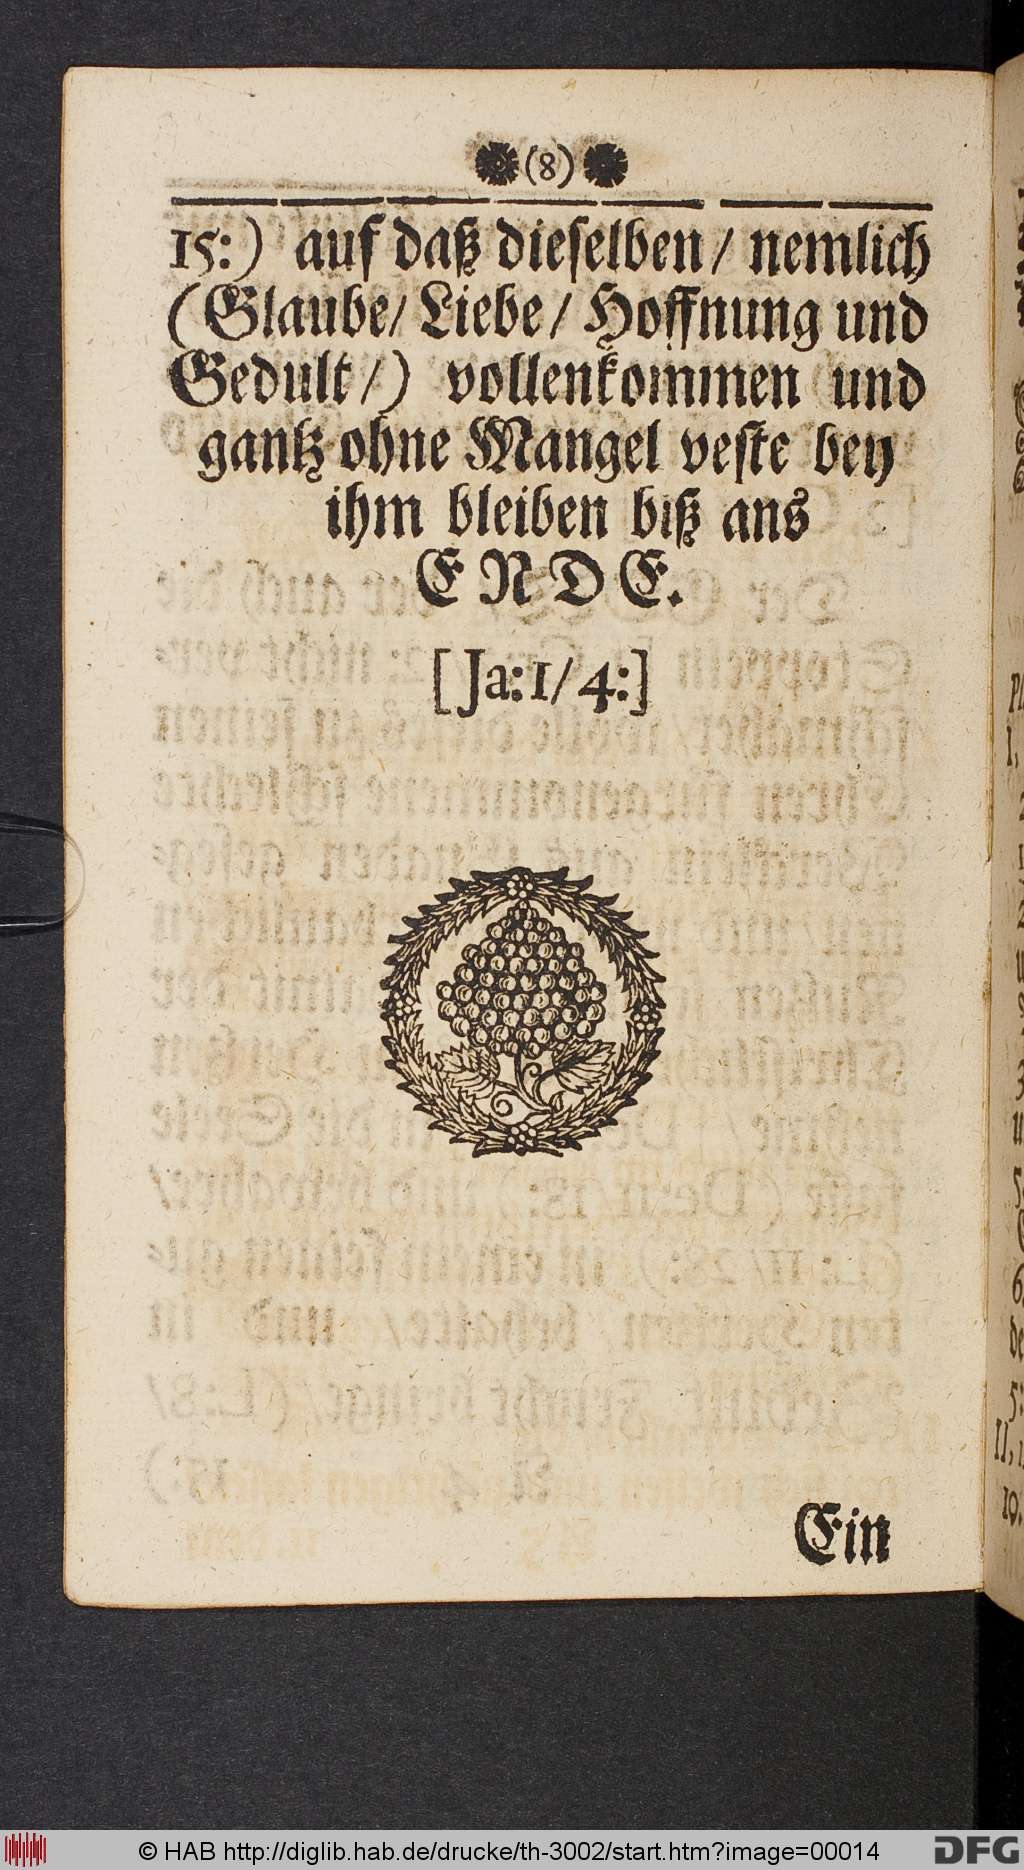 (8)
15:) auf daß dieselben / nemlich
(Glaube/ Liebe/ Hoffnung und
Gedult/) vollenkommen und
gantz ohne Mangel veste bey
ihm bleiben biß ans
ENDE.
[Ja:1/4:]
Ein
© HAB http://diglib.hab.de/drucke/th-3002/start.htm?image=00014
DFG